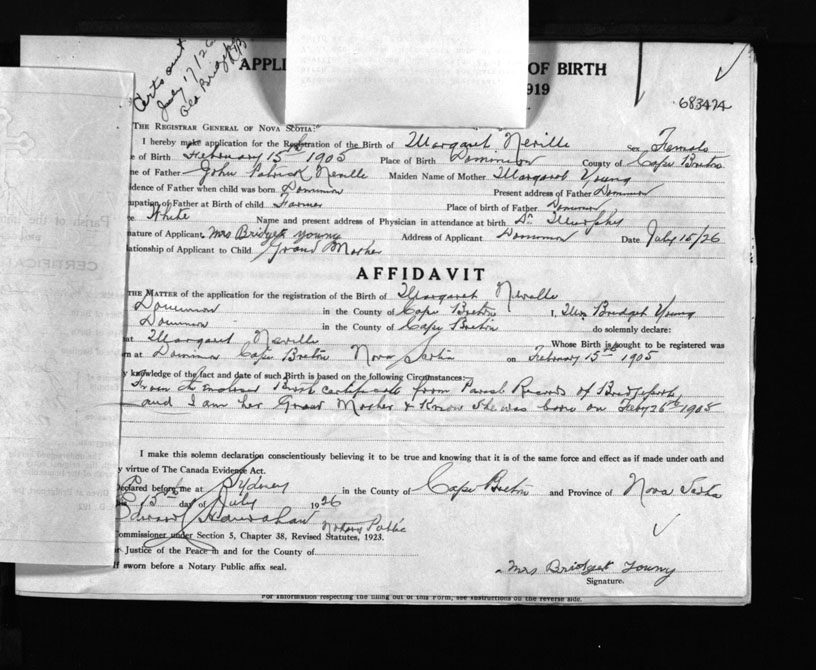 Certs out
July 17/26
APPLI OF BIRTH
1919
683474
THE REGISTRAR GENERAL OF NOVA SCOTIA:
I hereby make application for the Registration of the Birth of Margaret Neville Sex Female
e of Birth February 15th 1905 Place of Birth Dominion County of Cape Breton
me of Father John Patrick Neville Maiden Name of Mother Margaret Young
idence of Father when child was born Dominion Present address of Father Dominion
upation of Father at Birth of child Farmer Place of birth of Father Dominion
e White Name and present address of Physician in attendance at birth Dr Murphy
nature of Applicant Mrs Bridget Young Address of Applicant Dominion Date July 15/26
lationship of Applicant to Child Grand Mother
AFFIDAVIT
THE MATTER of the application for the registration of the Birth of Margaret Neville
Dominion in the County of Cape Breton I, Mrs Bridget Young
Dominion in the County of Cape Breton do solemnly declare:
at Margaret Neville Whose Birth is sought to be registered was
rn at Dominion Cape Breton Nova Scotia on February 15th 1905
y knowledge of the fact and date of such Birth is based on the following Circumstances:
From the enclosed Birth certificate from Parish Records of Bridgeport
and I am her Grand Mother & Know She was born on Feby 26th 1905
I make this solemn declaration conscientiously believing it to be true and knowing that it is of the same force and effect as if made under oath and
y virtue of The Canada Evidence Act.
Declared before me at Sydney in the County of Cape Breton and Province of Nova Scotia
15th day of July 1926
Edward Hanrahan Notary Public
ommissioner under Section 5, Chapter 38, Revised Statutes, 1923.
r Justice of the Peace in and for the County of
f sworn before a Notary Public affix seal.
Mrs Bridget Young
Signature.
For information respecting the filling out of this Form, see instructions on the reverse side.